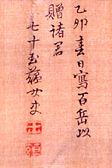 乙卯春日寫百岳以
贈諸君
七十五蘇女史